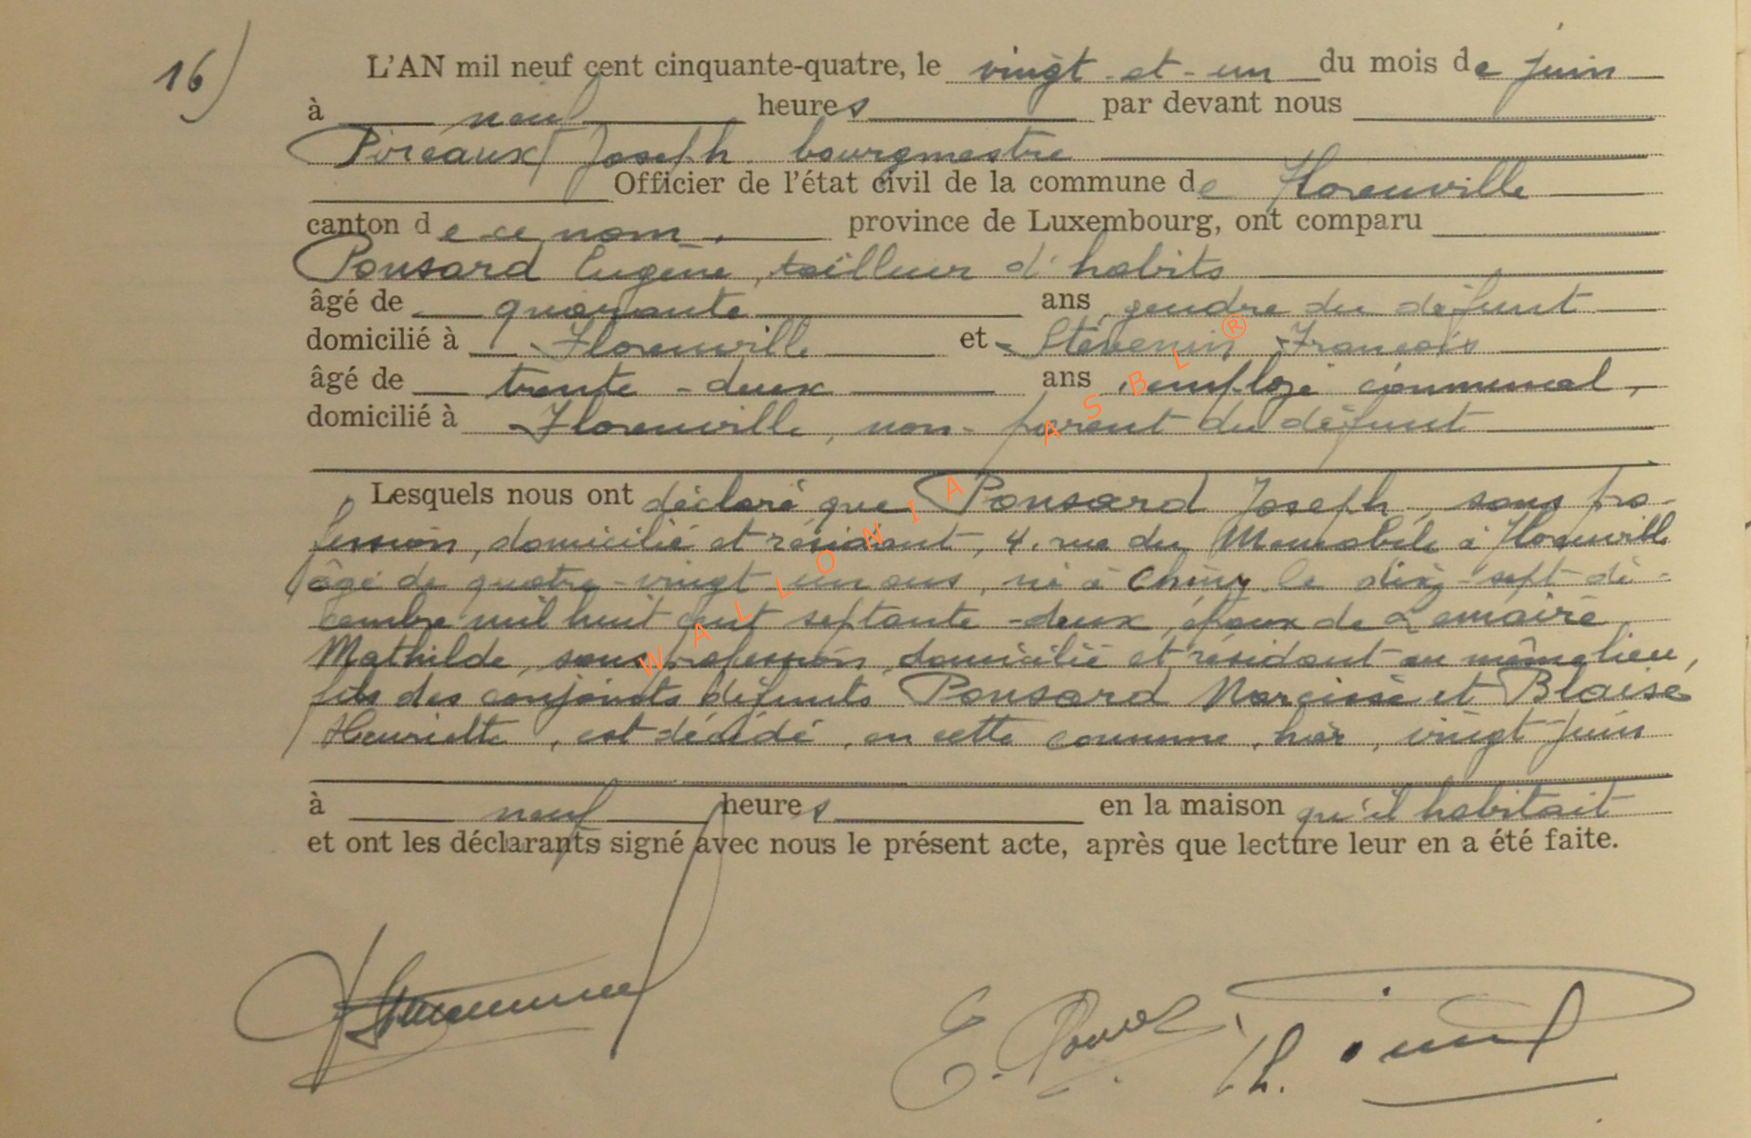 16)
L'AN mil neuf cent cinquante-quatre, le vingt-et-un du mois de juin
à neuf heures par devant nous
Pireaux Joseph bourgmestre
Officier de l'état civil de la commune de Florenville
canton de ce nom, province de Luxembourg, ont comparu
Ponsard Eugène, tailleur d'habits
âgé de quarante ans, gendre du défunt
domicilié à Florenville et Stévenin François
âgé de trente-deux ans, employé communal,
domicilié à Florenville, non-parent du défunt
Lesquels nous ont déclaré que Ponsard Joseph, sans pro-
fession, domicilié et résidant, 4, rue du à Florenville
âgé de quatre-vingt un ans, né à Chiny le dix-sept dé-
cembre mil huit cent septante-deux, époux de Lemaire
Mathilde, sans profession, domicilié et résidant au même lieu,
fils des conjoints défunts Ponsard Narcisse et Blaise
Henriette, est décédé, en cette commune, hier, vingt juin
à neuf heures en la maison qu'il habitait
et ont les déclarants signé avec nous le présent acte, après que lecture leur en a été faite.
WALLONIA ASBL ®